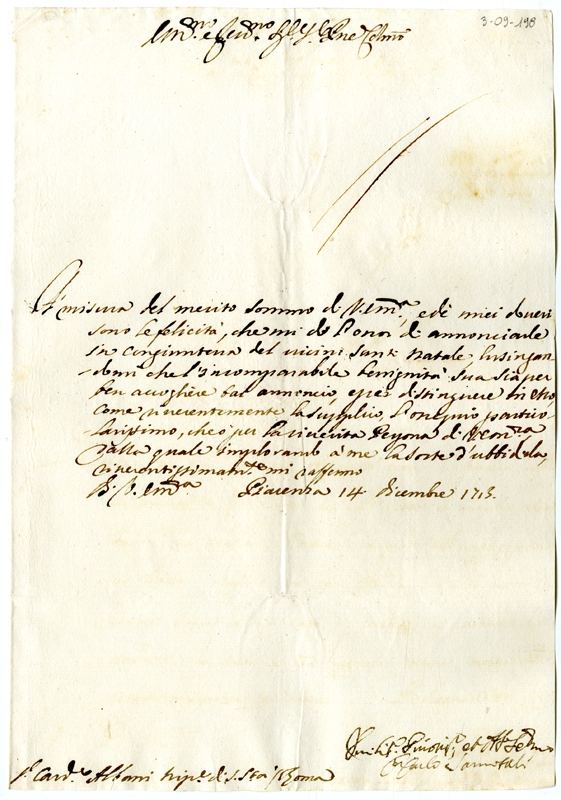 3-09-198
Em.mo e Rev.mo Sig.r Sig.r Pne Colmo
A' misura del merito sommo di V. Em.za, e de miei doveri
sono le felicità, che mi dò l'onor di annonciarle
in congiuntura del vicini Santi Natale lusingan-
domi che l'incomparabile benignità sua sia per
ben accogliere tal annoncio, e per distinguere in esso
come riverentemente la supplico, l'ossequio partico-
larissimo, che ò per la riverita Persona di V. Em.za
dalla quale implorando à me la sorte d'ubbidirla,
riverentissimam.te mi raffermo
Di V. Em.za Piacenza 14 Dicembre 1713.
Umilis.o Divotis.o et
Carlo
S.r Card.le Albani di S. Stà Roma